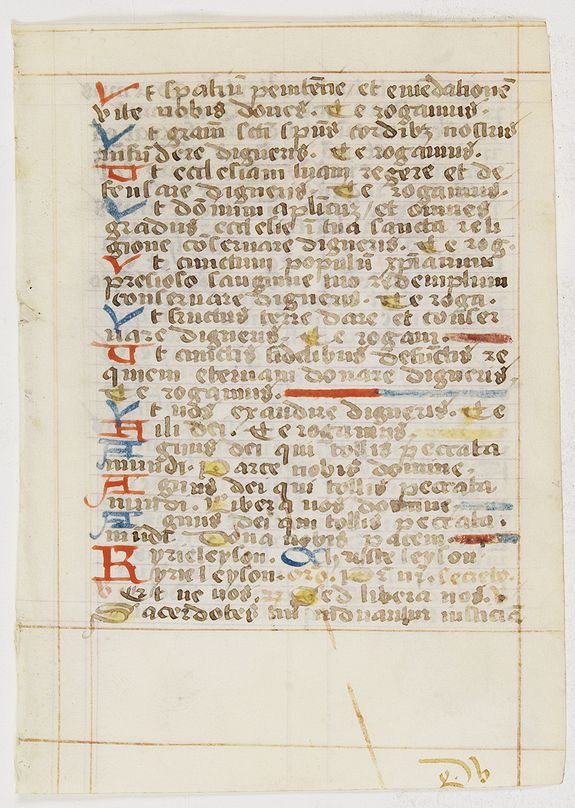 Vt spatiū penitētie / et emēdationē
vite nobis dones. Te rogamus.
Vt grām scti spūs cordibz nostris
infūdere digneris. Te rogamus.
Ut ecclesiam tuam regere et de
fensare digneris. Te rogamus.
Vt dōmm aplicuz / et omnes
gradus ecclesie ī tua sancta reli
gione cōseruare digneris. Te rog.
Vt cunctum populū xpīanum
precioso sanguine tuo redemptum
conseruare digneris. Te roga.
Vt fructus terre dare et conser
uare digneris. Te rogam.
Ut cunctis fidelibus defūctis re
quiem eternam donare digneris
Te rogamus.
Vt nos exaudire digneris. Te
Fili dei. Te rogamus
Agnus dei qui tollis peccata
mundi. Parce nobis domine.
Agnus dei qui tollis peccata
mundi. Libera nos domine
Agnus dei qui tollis peccata.
mūdi. Dona nobis pacem.
Kyrieleyson. Christeleyson
Kyrieleyson. oro. Pr nr. secrete.
Et ne nos. Sed libera nos.
Sacerdotes tui induantur iusticiā